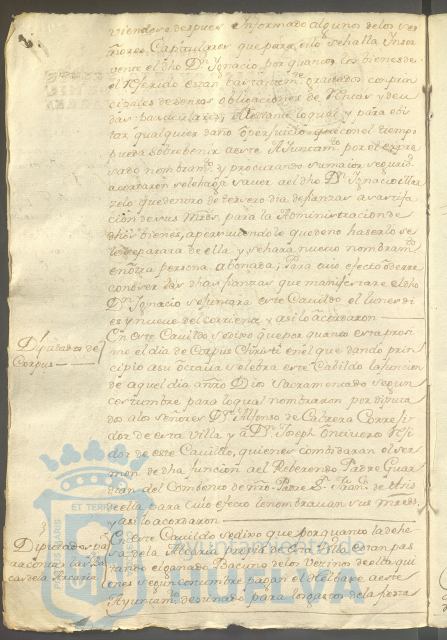 viendose despues Informado algunos de los se
ñores Capitulares que para ello se halla Insol
vente el dho Dn Ignacio por quanto los bienes de
el Referido estan bastantemte gravados con prin
cipales de zensos obligaciones de
das particulares; Atento lo qual y para evi
tar qualquier daño o perjuicio que con el tiempo
pueda sobrebenir a este Ayuntamto por el expre
sado nombramto y procurando su maior segurid
acordaron se le haga saver al dho Dn Ignacio
zelo que dentro de terzero dia de fianzas a satisfa
cion de sus Mrds para la Administracion de
dhos bienes, apersiviendole que de no hazerlo se
le separara de ella y se hara nuevo nombramto
en otra persona abonada; Para cuio efecto de
conoser las dhas fianzas que manifestare el dho
Dn Ignacio se juntara este Cavildo el lunes di
es y nueve del corriente y asi lo acordaron
Diputados de
Corpus
En este Cavildo se dixo que por quanto esta proxi
mo el dia de Corpus Christi en el que dando prin
cipio a su octava selebra este Cabildo la funcion
de aquel dia a nro Dios Sacramentado segun
costumbre para lo qual nombraron por diputa
dos a los señores Dn Alfonso de Cabrera Correxi
dor de esta villa y a Dn Joseph Reji
dor de este Cavildo, quienes combidaran el ser
mon de dha funcion a el Reberendo Padre Guar
dian del Combento de nro Padre Sn Franco de
para cuio efecto le nombravan sus mrds
y asi lo acordaron
Diputados pa
ra contar las Ba
cas de la Alcaria
En este Cavildo se dixo que por quanto la dehe
sa de la Alcaria propia de esta Villa estan pas
tando el ganado Bacuno de los Vezinos de ella qui
enes segun costumbre pagan el a este
Ayuntamto destinado para los gastos de la fiesta
ET TERRAE
Ayuntamiento de
HUELVA